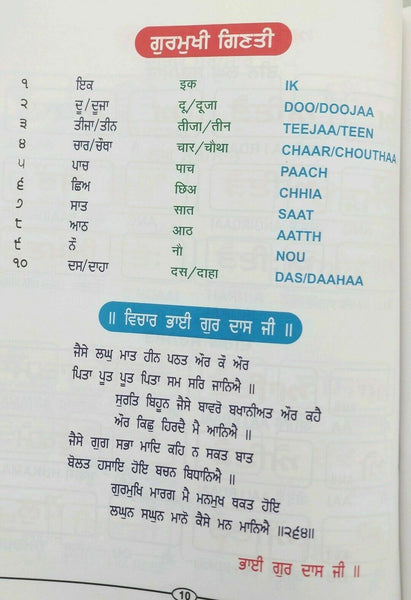 ਗੁਰਮੁਖੀ ਗਿਣਤੀ
੧ ਇਕ इक IK
੨ ਦੂ/ਦੂਜਾ दू/दूजा DOO/DOOJAA
੩ ਤੀਜਾ/ਤੀਨ तीजा/तीन TEEJAA/TEEN
੪ ਚਾਰ/ਚੌਥਾ चार/चौथा CHAAR/CHOUTHAA
੫ ਪਾਚ पाच PAACH
੬ ਛਿਅ छिअ CHHIA
੭ ਸਾਤ सात SAAT
੮ ਆਠ आठ AATTH
੯ ਨੌ नौ NOU
੧੦ ਦਸ/ਦਾਹਾ दस/दाहा DAS/DAAHAA
॥ ਵਿਚਾਰ ਭਾਈ ਗੁਰ ਦਾਸ ਜੀ ॥
ਜੈਸੇ ਲਘੁ ਮਾਤ ਹੀਨ ਪਠਤ ਅੌਰ ਕੌ ਅੌਰ
ਪਿਤਾ ਪੂਤ ਪੂਤ ਪਿਤਾ ਸਮ ਸਰਿ ਜਾਨਿਐ ॥
ਸੁਰਤਿ ਬਿਹੂਨ ਜੈਸੇ ਬਾਵਰੋ ਬਖਾਨੀਅਤ ਅੌਰ ਕਹੈ
ਅੌਰ ਕਿਛੁ ਹਿਰਦੈ ਮੈ ਆਨਿਐ ॥
ਜੈਸੇ ਗੁਗ ਸਭਾ ਮਾਦਿ ਕਹਿ ਨ ਸਕਤ ਬਾਤ
ਬੋਲਤ ਹਸਾਇ ਹੋਇ ਬਚਨ ਬਿਧਾਨਿਐ ॥
ਗੁਰਮੁਖਿ ਮਾਰਗ ਮੈ ਮਨਮੁਖ ਥਕਤ ਹੋਇ
ਲਘੁਨ ਸਘੁਨ ਮਾਨੋ ਕੈਸੇ ਮਨ ਮਾਨਿਐ ॥੨੬੪॥
ਭਾਈ ਗੁਰ ਦਾਸ ਜੀ
10